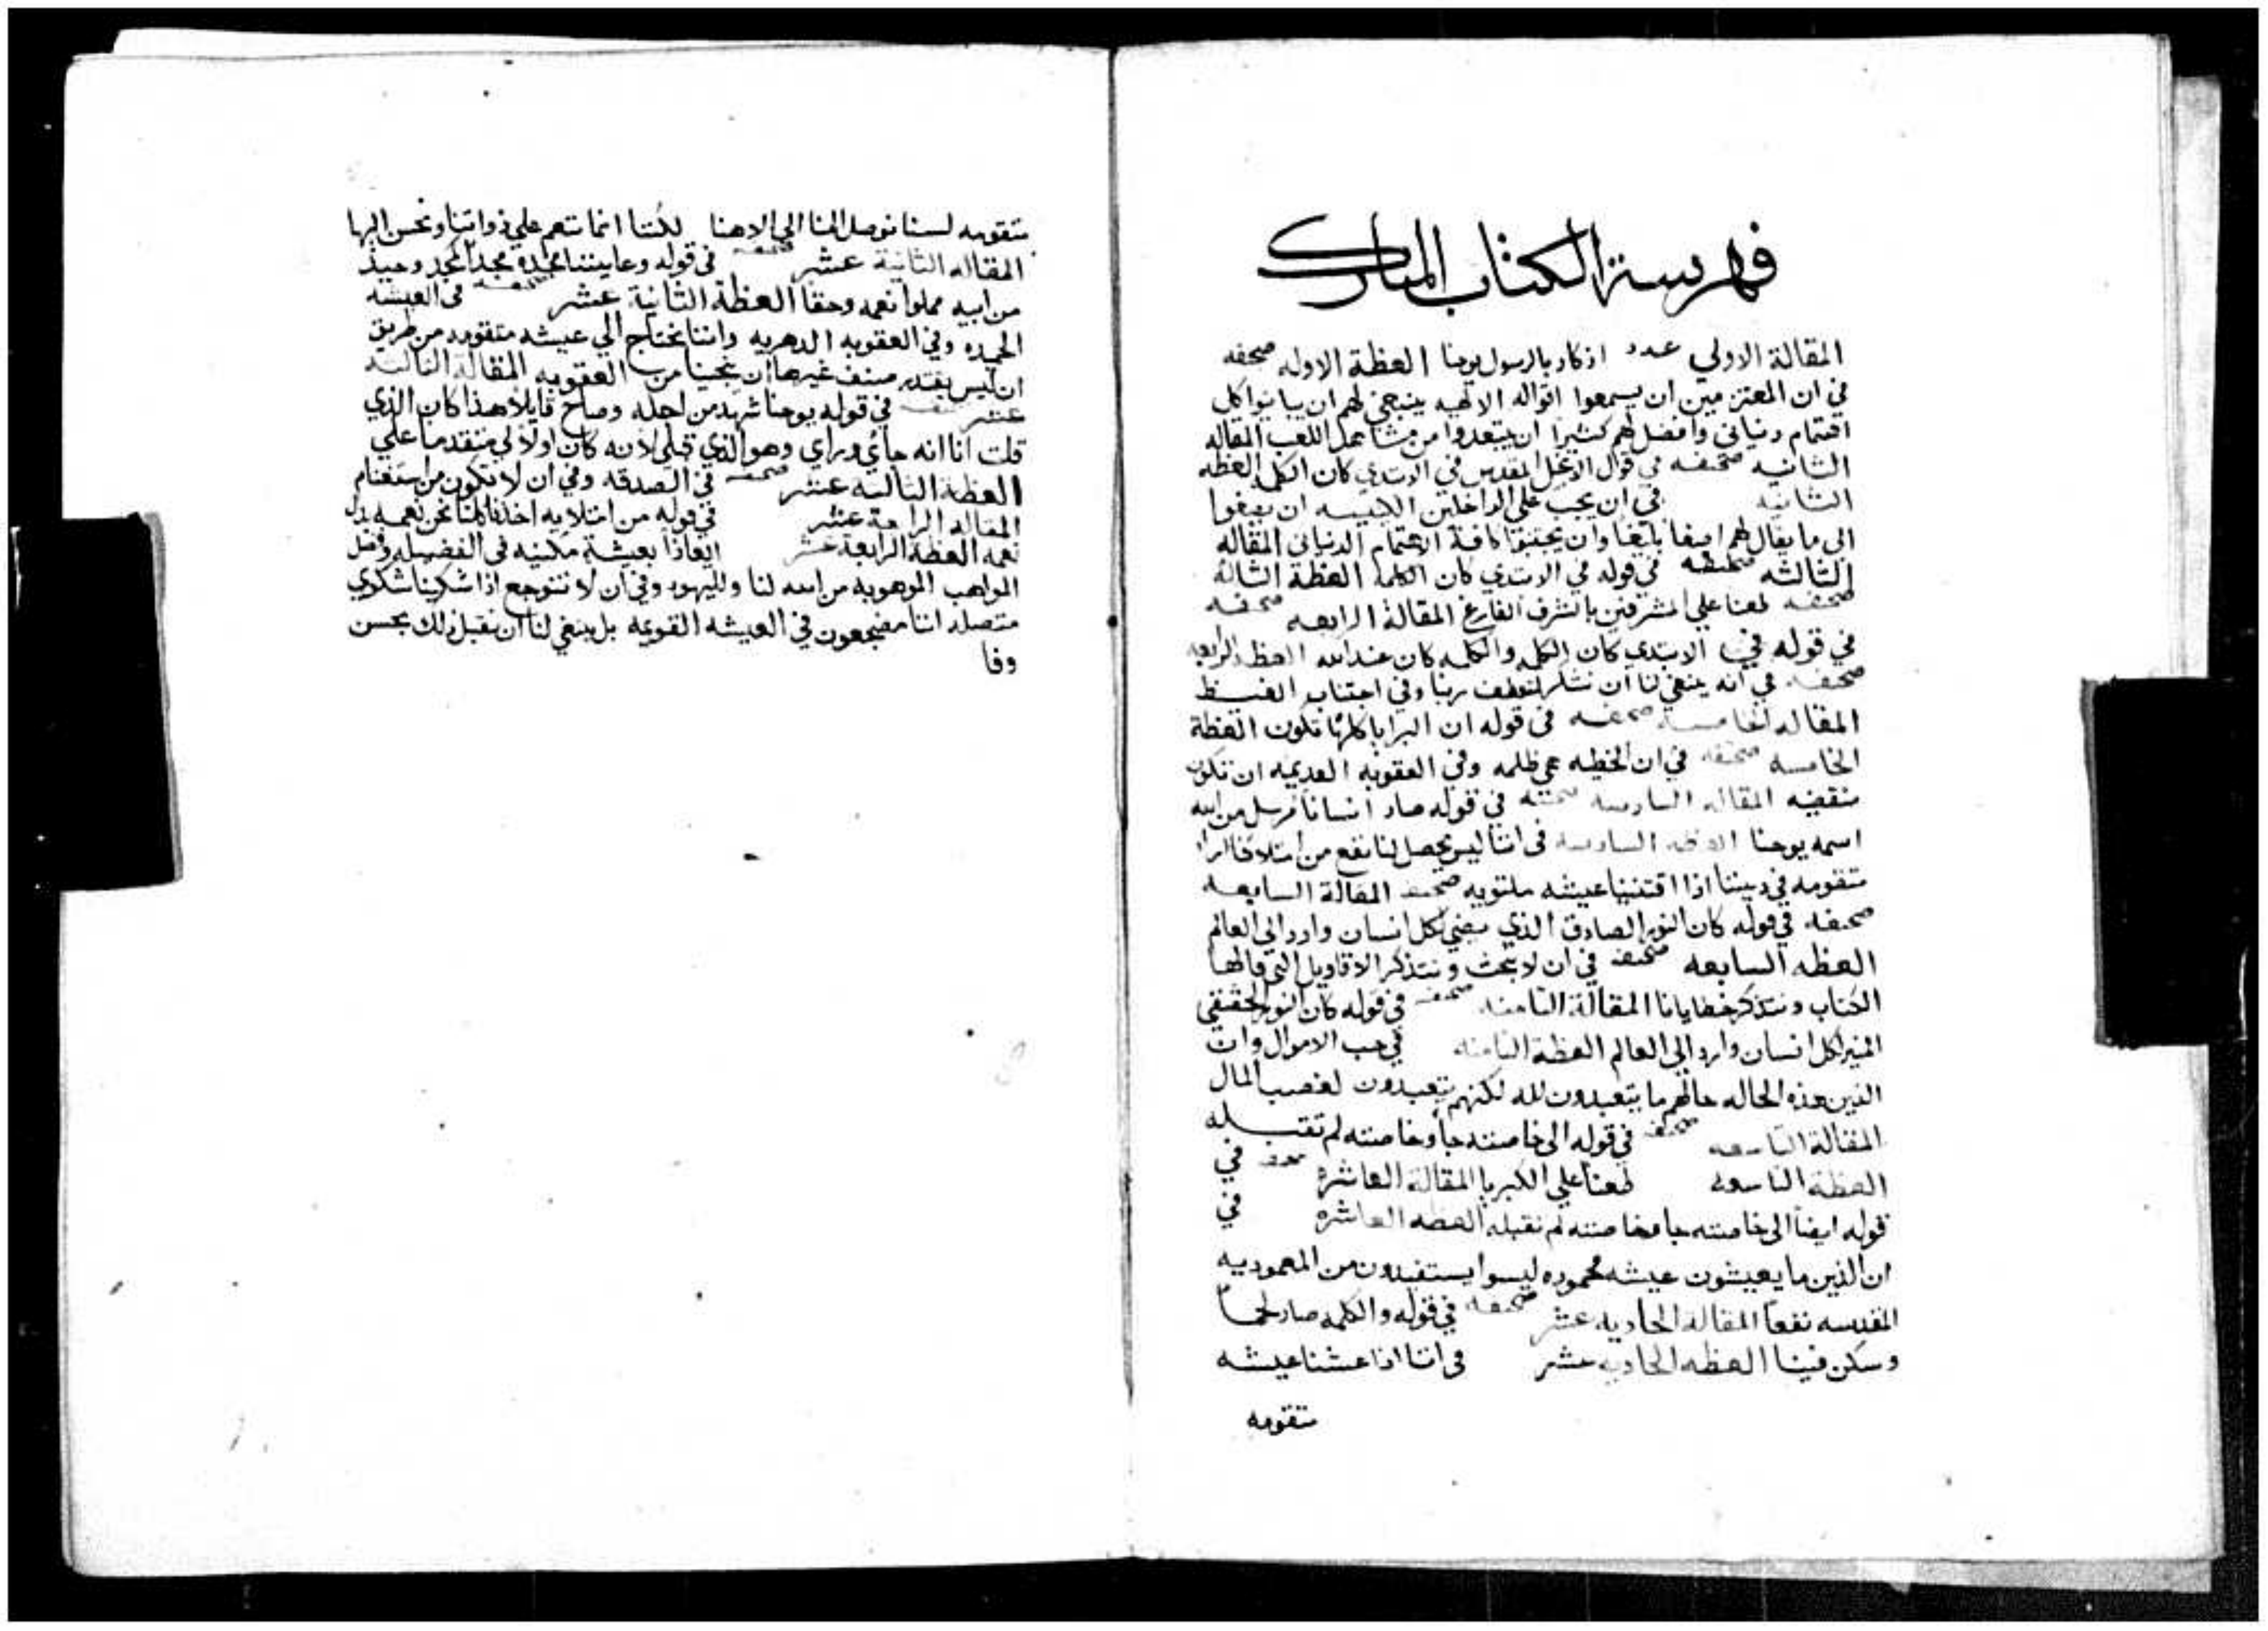 فهرسة الكتاب المبارك
المقالة الاولي عدد اذكار بالرسول يوحنا العظة الاوله صحيفه
في ان المعتزمين ان يسمعوا اقواله الالهيه ينبغي لهم ان يباينوا كل
اهتمام دنياني وافضل لهم كثيرا ان يبتعدوا من مشاهد اللعب المقاله
الثانيه صحيفه في قول الانجيل المقدس في الابتدي كان الكلمه العظه
الثانيه في ان يجب علي الداخلين الكنيسه ان يصغوا
الي ما يقال لهم اصغا بالغا وان يجتنبوا كافة الاهتمام الدنياني المقاله
الثالثه صحيفه في قوله في الابتدي كان الكلمه العظة الثالثة
صحيفه طعنا علي المشرفين بالشرف الفارغ المقالة الرابعه صحيفه
في قوله في الابتدي كان الكلمه والكلمه كان عند الله العظه الرابعه
صحيفه في انه ينبغي لنا ان نشكر لتعطف ربنا وفي اجتناب الغيظ
المقاله الخامسه صحيفه في قوله ان البرايا كلها به تكون العظة
الخامسه صحيفه في ان الخطيه هي ظلمه وفي العقوبه العديمه ان تكون
منقضيه المقاله السادسه صحيفه في قوله صار انسانا مرسل من الله
اسمه يوحنا العظه السادسه في اننا ليس يحصل لنا نفع من امتلاكنا ارا
متقومه في ديننا اذا اقتنينا عيشه ملتويه صحيفه المقالة السابعه
صحيفه في قوله كان النور الصادق الذي يضي لكل انسان وارد الي العالم
العظه السابعه صحيفه في ان لا نبحث ونتذكر الاقاويل التي قالها
الكتاب ونتذكر خطايانا المقالة الثامنه صحيفه في قوله كان النور الحقيقي
المنير لكل انسان وارد الي العالم العظة الثامنه في حب الاموال وان
الذين هذه الحاله حالهم ما يتعبدون لله لكنهم يتعبدون لغصب المال
المقالة التاسعه صحيفه في قوله الي خاصته جا وخاصته لم تقبله
العظة التاسعه طعنا علي الكبريا المقالة العاشره صحيفه في
قوله ايضا الي خاصته جا وخاصته لم تقبله العظه العاشره في
ان الذين ما يعيشون عيشه محموده ليسوا يستفيدون من المعموديه
المقدسه نفعا المقالة الحاديه عشر صحيفه في قوله والكلمه صار لحما
وسكن فينا العظه الحاديه عشر في اننا اذا عشنا عيشه
متقومه
متقومه لسنا نوصل الي الاهنا لكننا انما ننعم علي ذواتنا ونحسن اليها
المقاله الثانية عشر صحيفه في قوله وعايننا مجده مجدا كمجد وحيد
من ابيه مملوا نعمه وحقا العظة الثانية عشر صحيفه في العيشه
الحميده وفي العقوبه الدهريه واننا نحتاج الي عيشه متقومه من طريق
ان ليس يقتدر صنف غيرها ان ينجينا من العقوبه المقالة الثالثه
عشر صحيفه في قوله يوحنا شهد من اجله وصاح قايلا هذا كان الذي
قلت انا انه جاي وراي وهو الذي قبلي لانه كان اولا لي متقدما علي
العظة الثالثه عشر صحيفه في الصدقه وفي ان لا تكون من استغنام
المقاله الرابعة عشر في قوله من امتلايه اخذنا كلنا نحن نعمه بدل
نعمه العظة الرابعة عشر ايعازا بعيشة مكينه في الفضيله وفضل
المواهب الموهوبه من الله لنا ولليهود وفي ان لا نتوجع اذا شكينا شكوي
متصله اننا مضجعون في العيشه القويمه بل ينبغي لنا ان نقبل ذلك بحسن
وفا